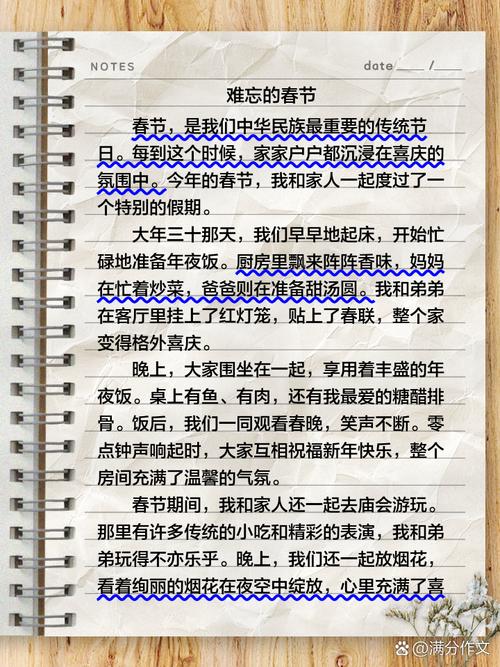 NOTES
date ____ /____
难忘的春节
春节，是我们中华民族最重要的传统节
日。每到这个时候，家家户户都沉浸在喜庆的
氛围中。今年的春节，我和家人一起度过了一
个特别的假期。
大年三十那天，我们早早地起床，开始忙
碌地准备年夜饭。厨房里飘来阵阵香味，妈妈
在忙着炒菜，爸爸则在准备甜汤圆。我和弟弟
在客厅里挂上了红灯笼，贴上了春联，整个家
变得格外喜庆。
晚上，大家围坐在一起，享用着丰盛的年
夜饭。桌上有鱼、有肉，还有我最爱的糖醋排
骨。饭后，我们一同观看春晚，笑声不断。零
点钟声响起时，大家互相祝福新年快乐，整个
房间充满了温馨的气氛。
春节期间，我和家人还一起去庙会游玩。
那里有许多传统的小吃和精彩的表演，我和弟
弟玩得不亦乐乎。晚上，我们还一起放烟花，
看着绚丽的烟花在夜空中绽放，心里充满了喜
@满分作文